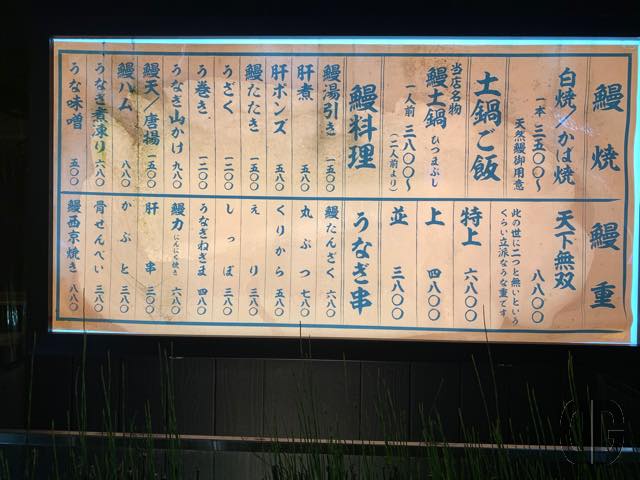 鰻焼
白焼/かば焼
一本 三五〇〇~
天然鰻御用意
土鍋ご飯
当店名物
鰻土鍋 ひつまぶし
一人前 三八〇〇~
(二人前より)
鰻料理
鰻湯引き 一五〇〇
肝煮 五八〇
肝ポンズ 五八〇
鰻たたき 一五〇〇
うざく 一二〇〇
う巻き 一二〇〇
うなぎ山かけ 九八〇
鰻天/唐揚 一五〇〇
鰻ハム 八八〇
うなぎ煮凍り 六八〇
うな味噌 五〇〇
鰻重
天下無双 八八〇〇
此の世に二つと無いという
くらい立派なうな重です
特上 六八〇〇
上 四八〇〇
並 三八〇〇
うなぎ串
鰻たんざく 六八〇
丸ぶつ 七八〇
くりから 五八〇
えり 三八〇
しっぽ 三八〇
うなぎねぎま 四八〇
鰻力 にんにく焼き 六八〇
肝串 三八〇
かぶと 三八〇
骨せんべい 三八〇
鰻西京焼き 八八〇